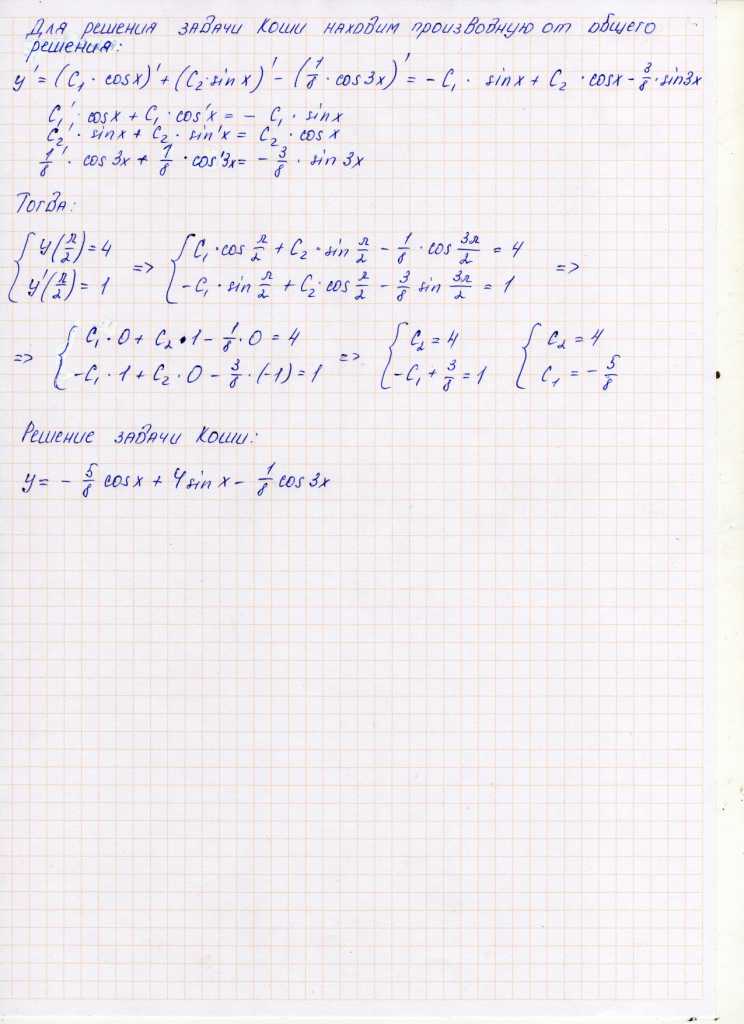 Для решения задачи Коши находим производную от общего
решения:
y' = (C₁ · cos x)' + (C₂ · sin x)' - (1/8 · cos 3x)' = - C₁ · sin x + C₂ · cos x - 3/8 · sin 3x
C₁' · cos x + C₁ · cos'x = - C₁ · sin x
C₂' · sin x + C₂ · sin'x = C₂ · cos x
1/8' · cos 3x + 1/8 · cos'3x = - 3/8 · sin 3x
Тогда:
{ y(π/2) = 4 => { C₁ · cos π/2 + C₂ · sin π/2 - 1/8 · cos 3π/2 = 4 =>
{ y'(π/2) = 1 { -C₁ · sin π/2 + C₂ · cos π/2 - 3/8 sin 3π/2 = 1
=> { C₁ · 0 + C₂ · 1 - 1/8 · 0 = 4 => { C₂ = 4 { C₂ = 4
{ -C₁ · 1 + C₂ · 0 - 3/8 · (-1) = 1 { -C₁ + 3/8 = 1 { C₁ = - 5/8
Решение задачи Коши:
y = - 5/8 cos x + 4 sin x - 1/8 cos 3x